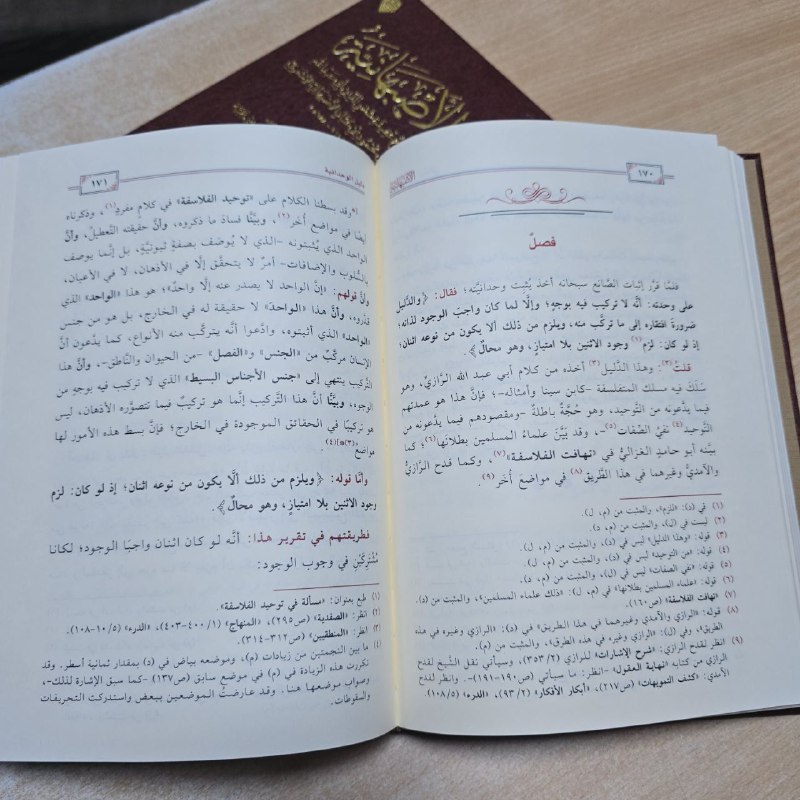 الأصبهانية
١٧٠
فصل
فلمَّا قرَّر إثبات الصَّانع سبحانه أخذ يُثبت وحدانيَّته؛ فقال: ﴿والدَّليل
على وحدته: أنَّه لا تركيب فيه بوجهٍ؛ وإلَّا لما كان واجبَ الوجود لذاته،
ضرورةَ افتقاره إلى ما تركَّب منه، ويلزم من ذلك ألَّا يكون من نوعه اثنان؛
إذ لو كان: لزم(١) وجود الاثنين بلا امتيازٍ، وهو محالٌ﴾.
قلتُ(٢): وهذا الدَّليل(٣) أخذه من كلام أبي عبد الله الرَّازيِّ، وهو
سَلَكَ فيه مسلك المتفلسفة -كابن سينا وأمثاله-؛ فإنَّ هذا هو عمدتهم
فيما يدَّعونه من التَّوحيد، وهو حُجَّةٌ باطلةٌ -ومقصودهم فيما يدَّعونه من
التَّوحيد(٤) نفيُ الصِّفات(٥)-، وقد بَيَّنَ علماءُ المسلمين بطلانها(٦)؛ كما
بيَّنه أبو حامدٍ الغزاليُّ في «تهافت الفلاسفة»(٧)، وكما قدح الرَّازيُّ
والآمديُّ وغيرهما في هذا الطَّريق(٨) في مواضع أُخَر(٩).
(١) في (د): «للزم»، والمثبت من (م، ل).
(٢) ليست في (ل)، والمثبت من (م، د).
(٣) قوله: «وهذا الدليل» ليس في (د)، والمثبت من (م، ل).
(٤) قوله: «من التوحيد» ليس في (د)، والمثبت من (م، ل).
(٥) قوله: «نفي الصفات» ليس في (ل)، والمثبت من (م، د).
(٦) قوله: «علماء المسلمين بطلانها» في (م، ل): «ذلك علماء المسلمين»، والمثبت من (د).
(٧) «تهافت الفلاسفة» (ص١٦٠).
(٨) قوله: «الرازي والآمدي وغيرهما في هذا الطريق» في (د): «الرازي وغيره في هذه
الطريق»، وفي (ل): «الرازي وغيره في هذه الطرق»، والمثبت من (م).
(٩) انظر لقدح الرازي: «شرح الإشارات» للرازي (٣٥٣/٢)، وسيأتي نقل الشَّيخ لقدح
الرازي من كتابه «نهاية العقول» -انظر: ما سيأتي (ص١٩٠-١٩١)-. وانظر لقدح
الآمدي: «كشف التمويهات» (ص٢١٧)، «أبكار الأفكار» (٩٣/٢)، «الدرء» (١٠٨/٥).
دليل الوحدانية
١٧١
وقد بسطنا الكلام على «توحيد الفلاسفة» في كلام مفردٍ(١)، وذكرناه
أيضًا في مواضع أُخَر(٢)، وبيَّنَّا فسادَ ما ذكروه، وأنَّ حقيقته التَّعطيلُ، وأنَّ
الواحد الذي يُثبتونه -الذي لا يُوصَف بصفةٍ ثبوتيَّةٍ، بل إنَّما يوصف
بالسُّلوب والإضافات- أمرٌ لا يتحقَّق إلَّا في الأذهان، لا في الأعيان،
وأنَّ قولهم: «إنَّ الواحد لا يصدر عنه إلَّا واحدٌ»؛ هو هذا «الواحد» الذي
قدَّروه، وأنَّ هذا «الواحد» لا حقيقة له في الخارج، بل هو من جنس
«الواحد» الذي أثبتوه، وادَّعوا أنَّه يتركَّب منه الأنواع، كما يدَّعون أنَّ
الإنسان مركَّبٌ من «الجنس» و«الفصل» -من الحيوان والنَّاطق-، وأنَّ هذا
التَّركيب ينتهي إلى «جنس الأجناس البسيط» الذي لا تركيب فيه بوجهٍ من
الوجوه، وبيَّنَّا أنَّ هذا التَّركيب إنَّما هو تركيبٌ فيما تتصوَّره الأذهان، ليس
هو تركيبًا في الحقائق الموجودة في الخارج؛ فإنَّ بسط هذه الأمور لها
مواضع(٣)(٤).
وأمَّا قوله: ﴿ويلزم من ذلك ألَّا يكون من نوعه اثنان؛ إذ لو كان: لزم
وجود الاثنين بلا امتيازٍ، وهو محالٌ﴾.
فطريقتهم في تقرير هذا: أنَّه لو كان اثنان واجبَا الوجود؛ لكانا
مُشْتَرِكَيْنِ في وجوب الوجود:
(١) طبع بعنوان: «مسألة في توحيد الفلاسفة».
(٢) انظر: «الصفدية» (ص٢٩٥)، «المنهاج» (٤٠٠/١-٤٠٣)، «الدرء» (١٠/٥-١٠٨).
(٣) انظر: «المنطقيين» (ص٣١٢-٣١٤).
(٤) ما بين النجمتين من زيادات (م)، وموضعه بياض في (د) بمقدار ثمانية أسطر. وقد
تكررت هذه الزيادة في (م) في موضع سابق (ص١٣٧) -كما سبق الإشارة لذلك-،
وصواب موضعها هنا. وقد عارضتُ الموضعين ببعض واستدركت التحريفات
والسقوطات.